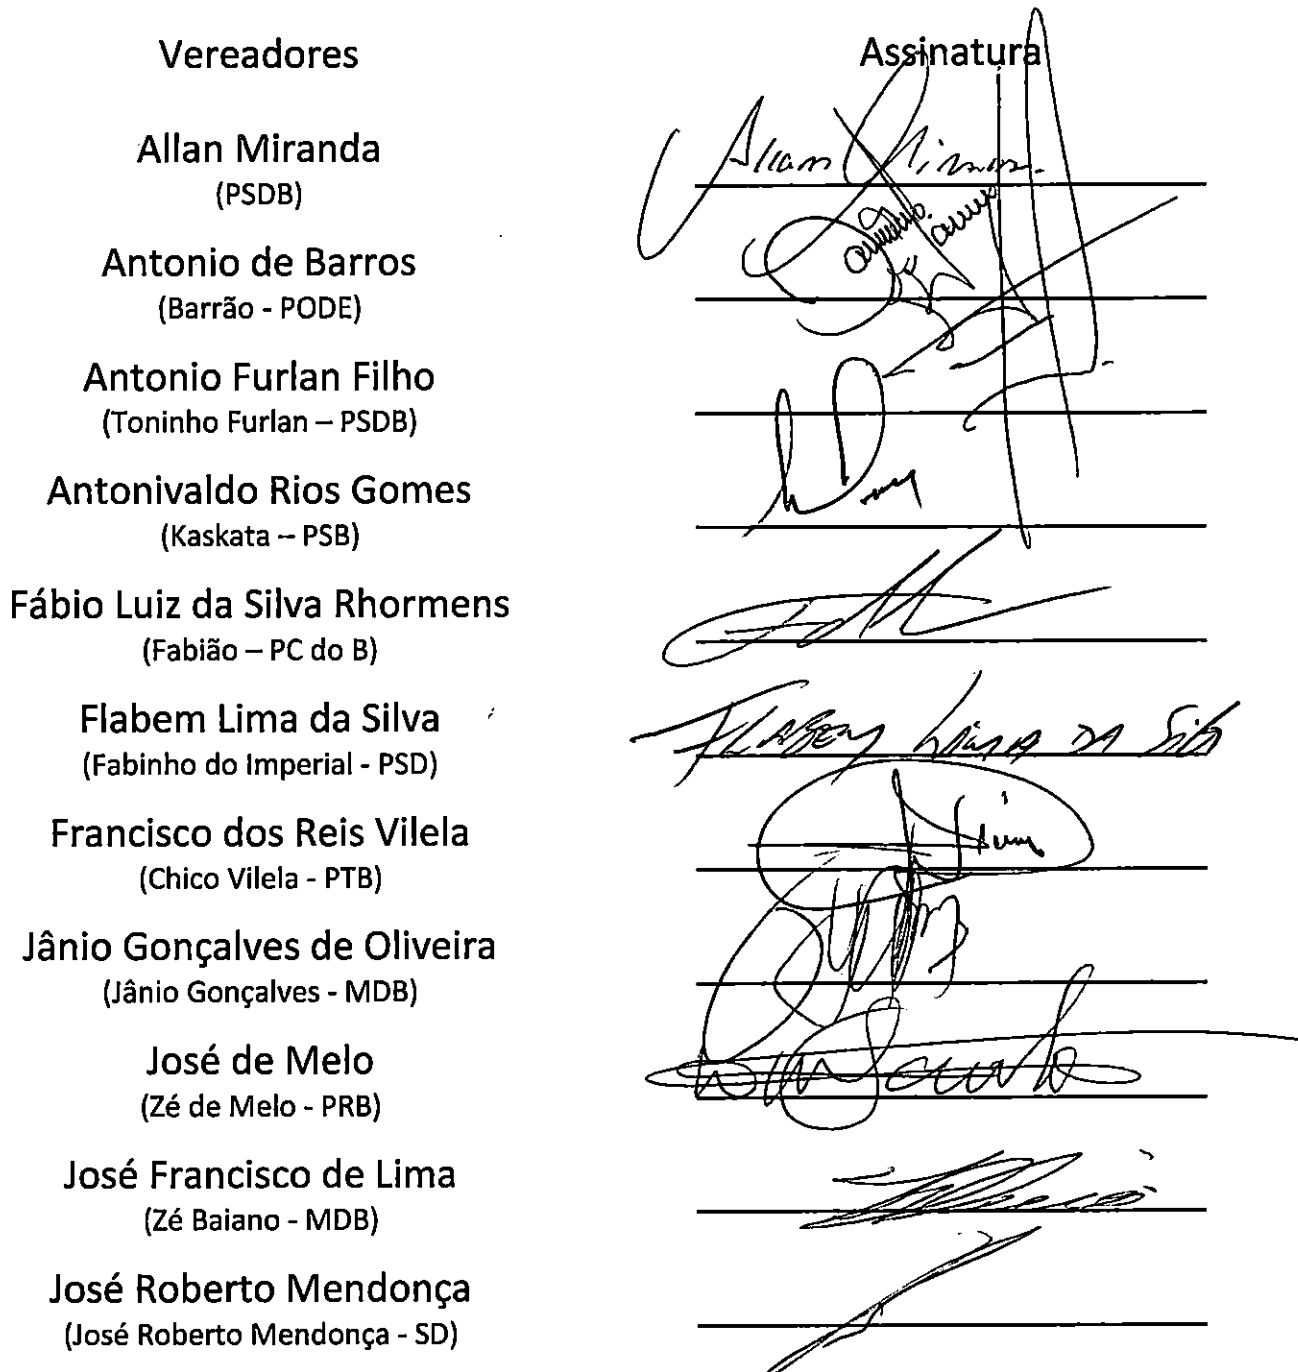 Vereadores Assinatura
Allan Miranda
(PSDB)
Antonio de Barros
(Barrão - PODE)
Antonio Furlan Filho
(Toninho Furlan – PSDB)
Antonivaldo Rios Gomes
(Kaskata – PSB)
Fábio Luiz da Silva Rhormens
(Fabião – PC do B)
Flabem Lima da Silva
(Fabinho do Imperial - PSD)
Flabem Lima da Silva
Francisco dos Reis Vilela
(Chico Vilela - PTB)
Jânio Gonçalves de Oliveira
(Jânio Gonçalves - MDB)
José de Melo
(Zé de Melo - PRB)
José Francisco de Lima
(Zé Baiano - MDB)
José Roberto Mendonça
(José Roberto Mendonça - SD)